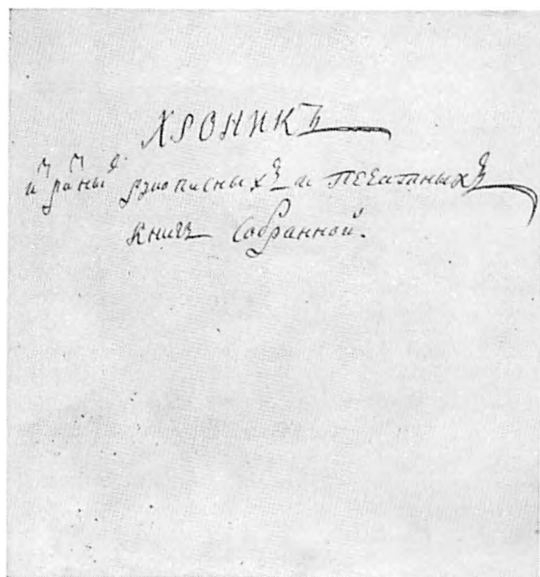 ХРОНИКЪ
из разных рукописныхъ и печатныхъ
книгъ собранной.